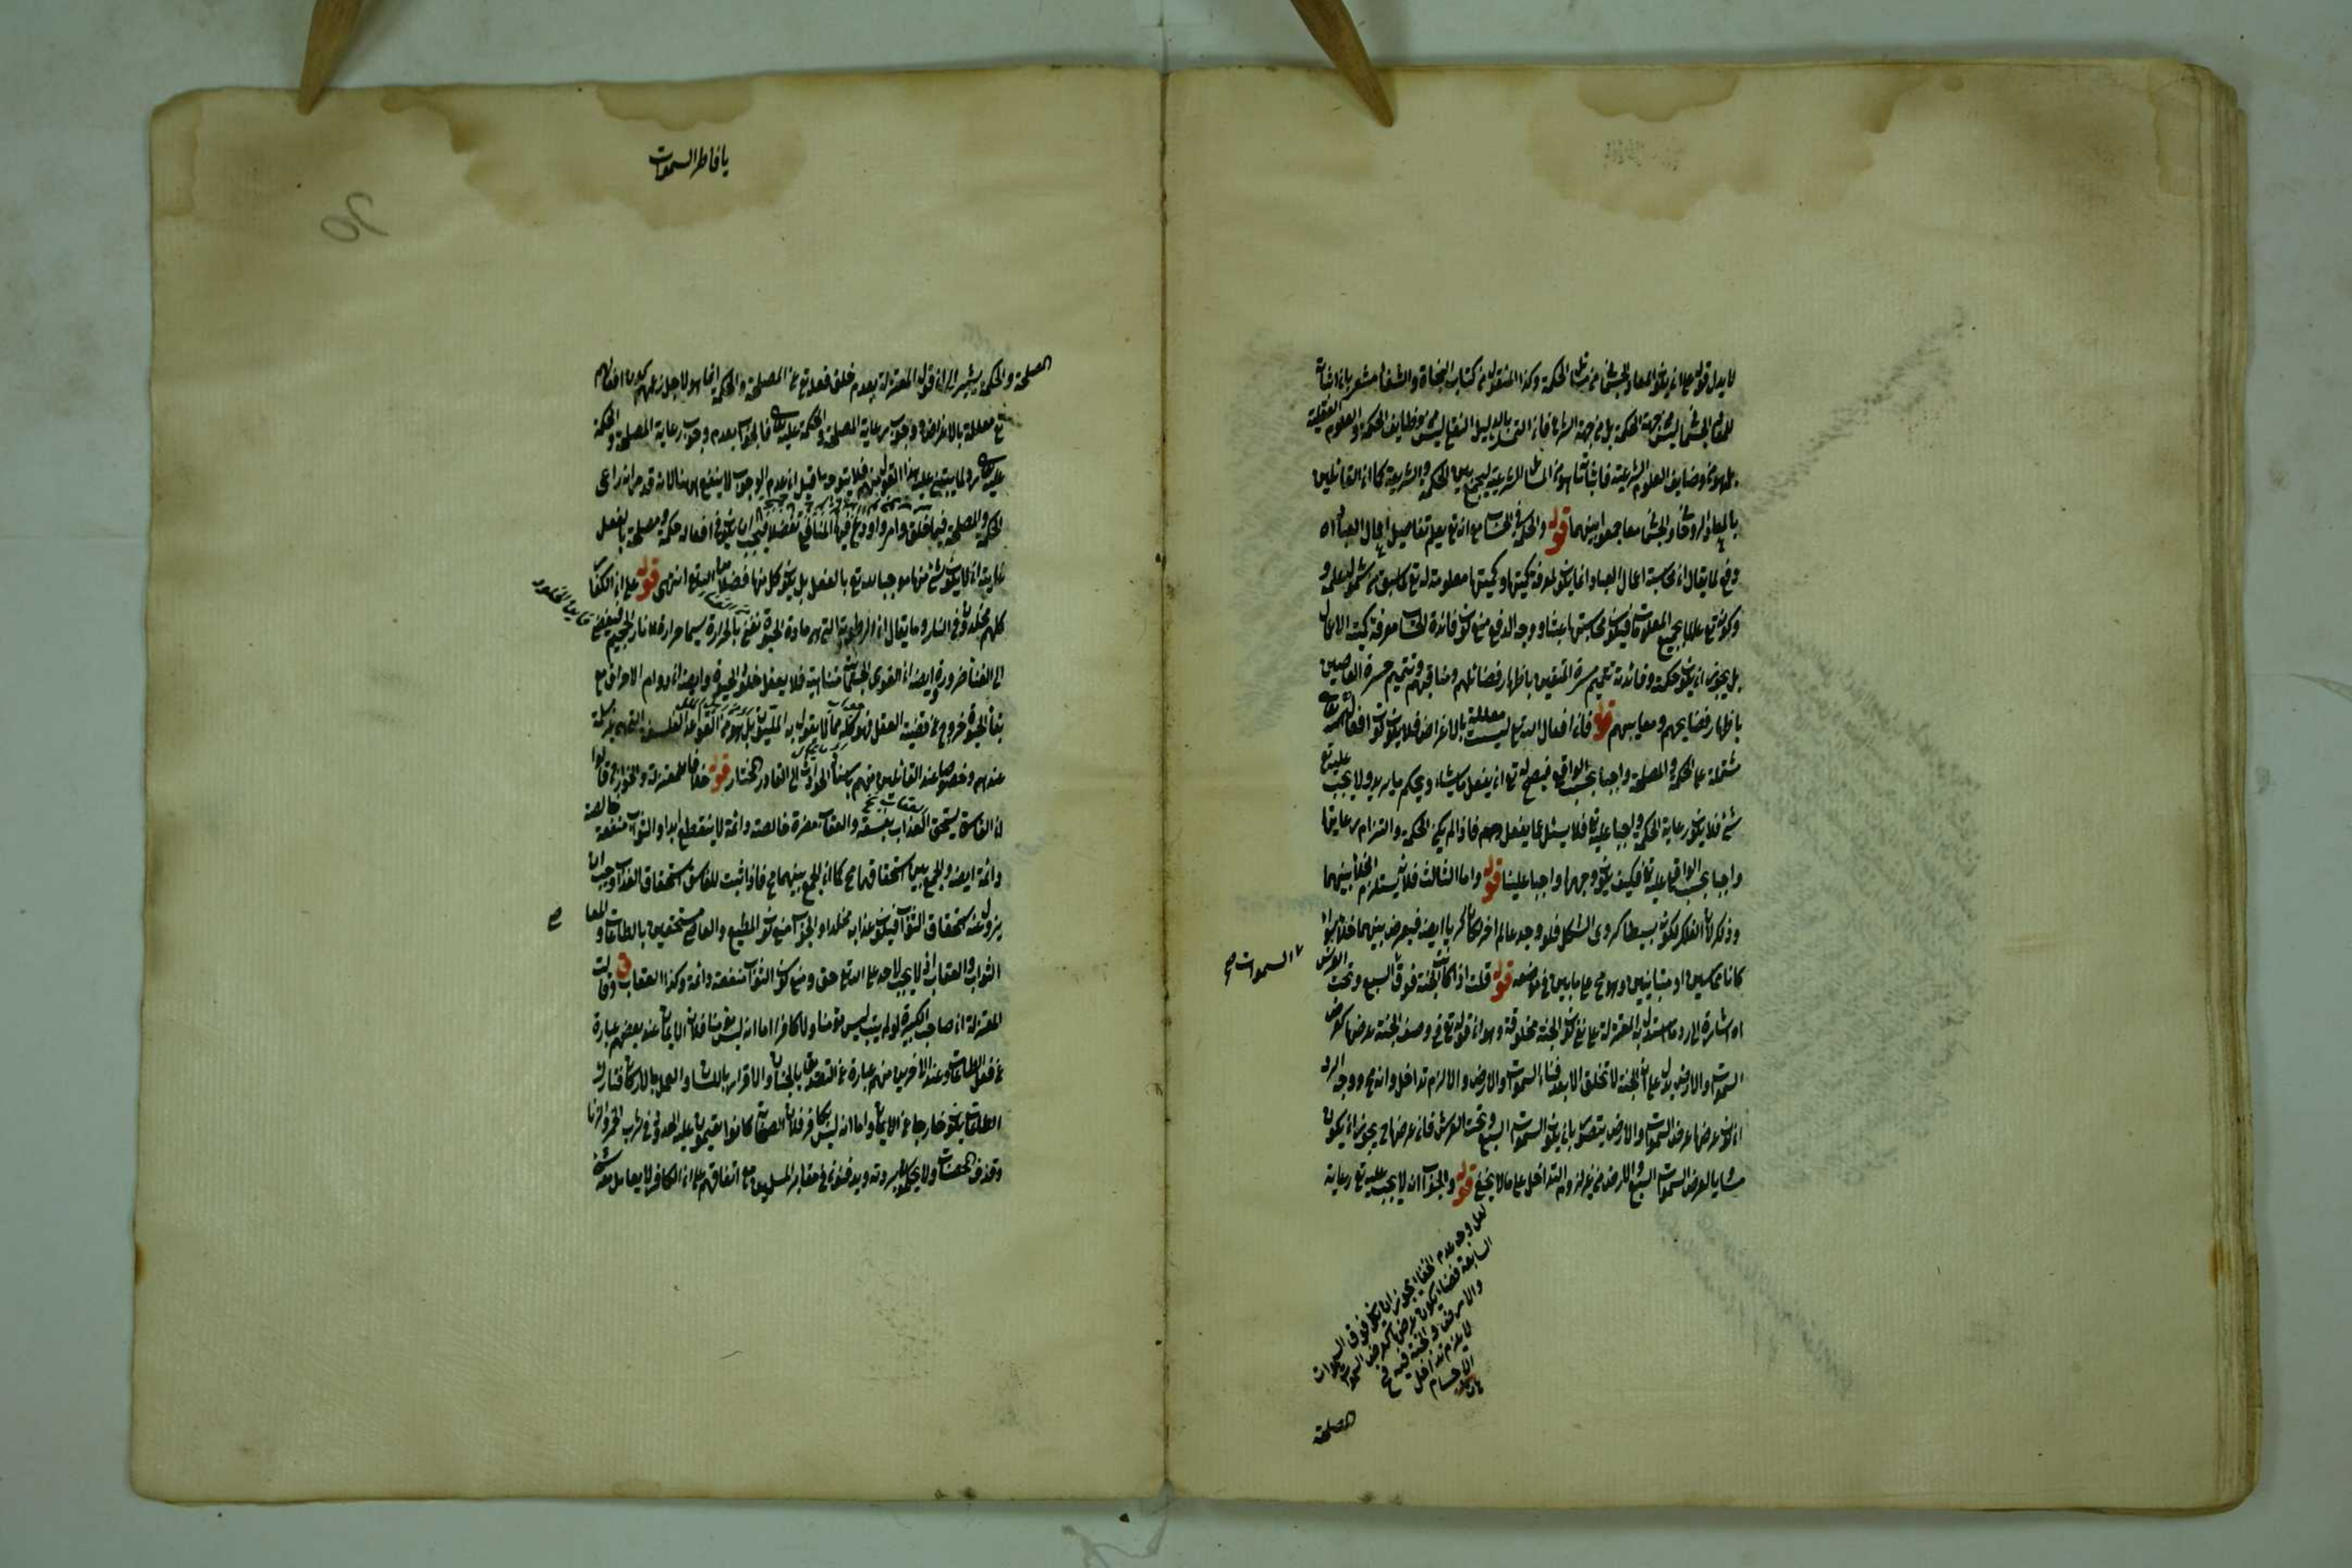 لا يدل قوله على ان يكون المعاد الجسمانى من مسائل الحكمة وكذا المنقول من كتاب النجاة والشفاء مشعر بان اثبات
المعاد الجسمانى ليس من جهة الحكمة بل من جهة الشرع فان التمسك بالدليل النقلى ليس من وظايف الحكمة والعلوم العقلية
بل هو من وضايف العلوم الشرعية فاثباتها هو من المسائل الشرعية ليجمع بين الحكمة والشريعة كما ان القائلين
بالمعاد الروحانى والجسمانى معا جمعوا بينهما قوله والحكمة فى الحساب مع انه تع يعلم تفاصيل اعمال العباد اه
دفع لما يقال ان محاسبة اعمال العباد انما يكون لمعرفة كيفيتها وكميتها معلومة له تع كما سبق من شمول علمه و
وكونه تع عالما بجميع المعلومات فيكون محاسبتها عبثا ووجه الدفع منع كون فائدة الحساب معرفة كمية الاعمال
بل يجوز ان يكون حكمة وفائدته تتميم مسرة المتقين باظهار فضائلهم ومناقبهم وتتميم حسرة العاصين
باظهار فضايحهم ومعايبهم قوله فان افعال الله تع ليست معللة بالاغراض فلا يكون كون افعاله تع
مشتملة على الحكمة والمصلحة واجبا بحسب الواقع فيصح له تع ان يفعل ما يشاء ويحكم ما يريد ولا يجب عليه تع
شئ فلا يكون رعاية الحكمة واجبا عليه تع فلا يسئل عما يفعل وهم فاذا لم يكن الحكمة والتزام رعايتها
واجبا بحسب الواقع عليه تع فكيف يكون وجهها واجبا علينا قوله واما الثالث فلانه يستلزم الخلاء بينهما
وذكر لان الفلك لكونه بسيطا كروى الشكل فلو وجد عالم اخر لكان كريا ايضا فيعرض بينهما خلاء سواء
كانا متماسين او متباينين وهو مح على ما بين فى موضعه قوله قلت اذا كانت الجنة فوق السموات السبع وتحت العرش
اه اشارة الى رد ما استدل به المعتزلة على نفى كون الجنة مخلوقة وهو ان قوله تع فى وصف الجنة عرضها كعرض
السموات والارض يدل على ان الجنة لا تخلق الا بعد فناء السموات والارض والا لزم تداخل وانه مح ووجه الرد
ان كون عرضها عرض السموات والارض يتصور بان يكون السموات السبع وتحت العرش فان عرضها ح يجوز ان يكون
مساويا لعرض السموات السبع والارض من غير لزوم التداخل على ما لا يخفى قوله والجواب ان لا يجب عليه تع رعاية
السموات صح
لعل وجه عدم الخفاء يجوز ان يكون فوق السموات
السابعة فضاء يكون عرضها كعرض السموات
والارض والجنة فيه ح
لا يلزم تداخل
الاجسام
المصلحة
يا فاطر السموات
المصلحة والحكمة يشير الى ان قول المعتزلة بعدم خلق فعله تع عن المصلحة والحكمة انما هو لاجل زعمهم كون افعاله
تع معللة بالاغراض ووجوب رعاية المصلحة والحكمة عليه تع فالجواب بعدم وجوب رعاية المصلحة والحكمة
عليه تع رد لما يبتنى عليه هذا القول منهم فلا يتوجه ما قيل ان عدم الوجوب لا ينفع ههنا لانه قد مر انه راعى
الحكمة والمصلحة فيما خلق وامر واودع فيها المنافع تفضلا فيجب ان يكون فى افعاله حكمة ومصلحة بالفعل
غايته ان لا يكون شئ منها موجبا له تع بالفعل بل يكون كل منها فضلا من الله تع انتهى قوله على ان الكفار
كلهم مخلدون فى النار وما يقال ان الرطوبة التى هى مادة الحيوة تفنى بالحرارة سيما حرارة نار الجحيم فيفضى
الى الفناء ضرورة وايضا ان القوى الجسمانية متناهية فلا يعقل خلود الحيوة وايضا ان دوام الاحراق مع
بقاء الحيوة خروج عن قضية العقل فهو كله مما لا يقول به المليون بل هو من القواعد الفلسفية الغير المسلمة
عندهم وخصوصا عند القائلين منهم باسناد الحوادث الى القادر المختار قوله خلافا للمعتزلة والخوارج قالوا
ان الفاسق يستحق العذاب بفسقه والعقاب مضرة خالصة دائمة لا ينقطع ابدا والثواب منفعة خالصة
دائمة ايضا والجمع بين استحقاقهما مح كما ان الجمع بينهما مح فاذا ثبت للفاسق استحقاق العذاب وجب ان
يزول عنه استحقاق الثواب فيكون عذابه مخلدا والجواب منع كون المطيع والعاصى مستحقين بالطاعات والمعا
الثواب والعقاب اذ لا يجب لاحد على الله تع حق ومنع كون الثواب منفعة دائمة وكذا العقاب وقالت
المعتزلة ان صاحب الكبيرة لو لم يتب ليس مؤمنا ولا كافرا اما انه ليس مؤمنا فلان الايمان عند بعضهم عبارة
عن فعل الطاعات وعند الاخرين منهم عبارة عن التصديق بالجنان والاقرار باللسان والعمل بالاركان فتارك
الطاعات يكون خارجا عن الايمان واما انه ليس بكافر فلان الصحابة كانوا يقيمون عليه الحد فى شرب الخمر والزنا
وقذف المحصنات ولا يحكمون بردته ويدفنونه فى مقابر المسلمين مع اتفاقهم على ان الكافر لا يعامل معه